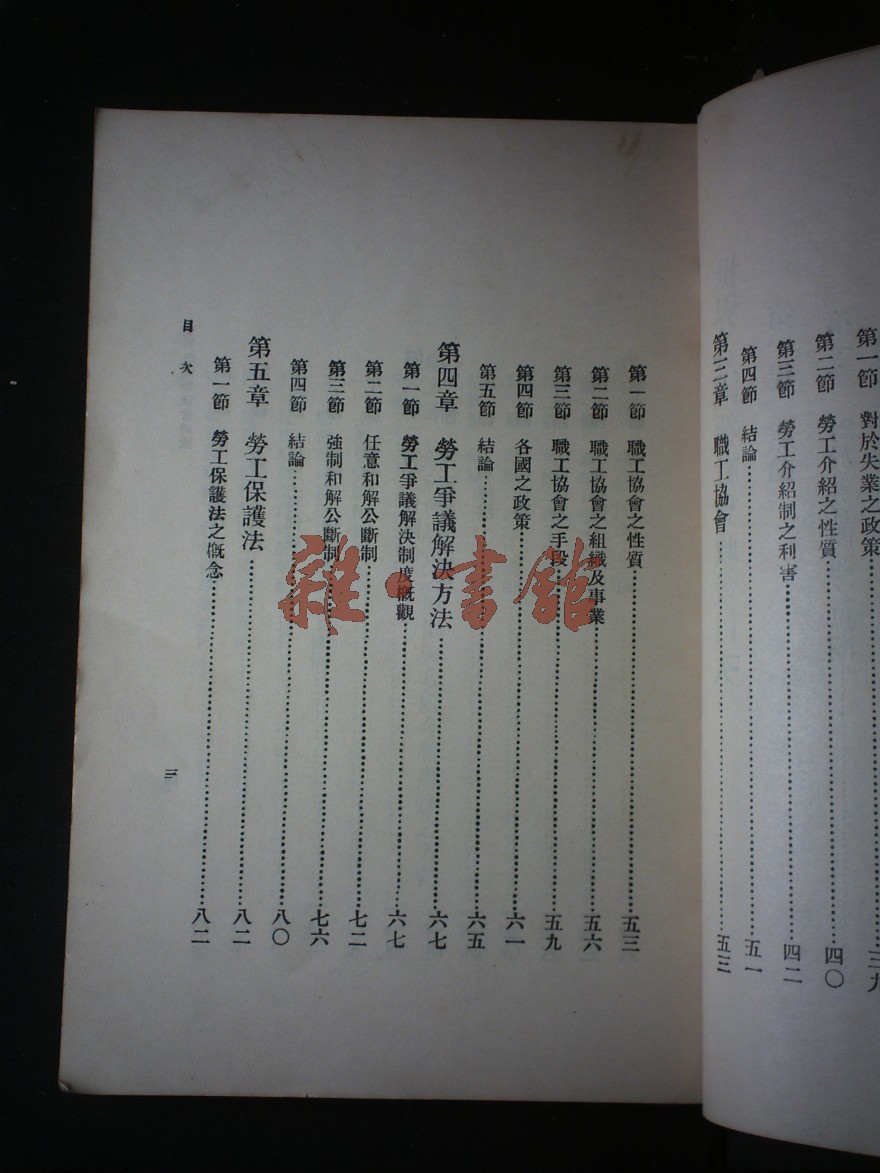 第一節 對於失業之政策……三九
第二節 勞工介紹之性質……四〇
第三節 勞工介紹制之利害……四二
第四節 結論……五一
第三章 職工協會……五三
第一節 職工協會之性質……五三
第二節 職工協會之組織及事業……五六
第三節 職工協會之手段……五九
第四節 各國之政策……六一
第五節 結論……六五
第四章 勞工爭議解決方法……六七
第一節 勞工爭議解決制度概觀……六七
第二節 任意和解公斷制……七二
第三節 強制和解公斷制……七六
第四節 結論……八〇
第五章 勞工保護法……八二
第一節 勞工保護法之概念……八二
目次
三
雜書館